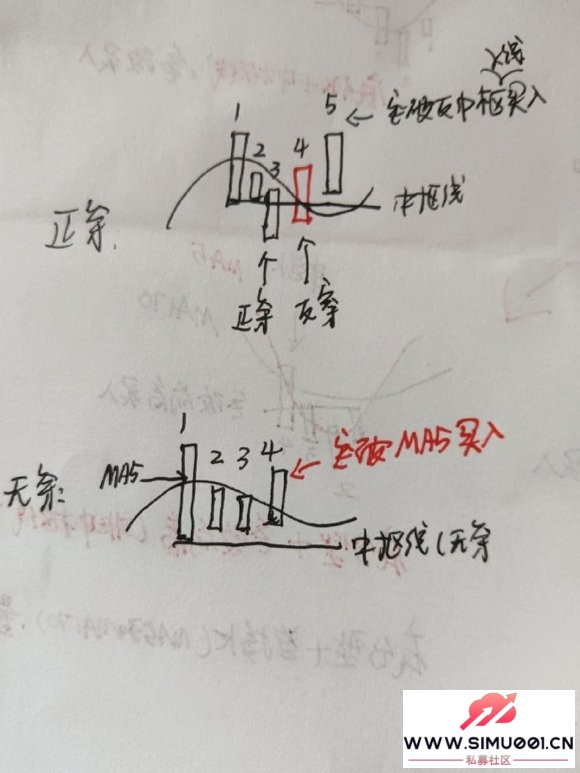 K线
1
5
突破反中枢买入
2
3
4
中枢线
正穿.
正穿
反穿
1
MA5
2 3 4
突破MA5买入
无穿:
中枢线(无穿
WWW.SIMU001.CN
私募社区